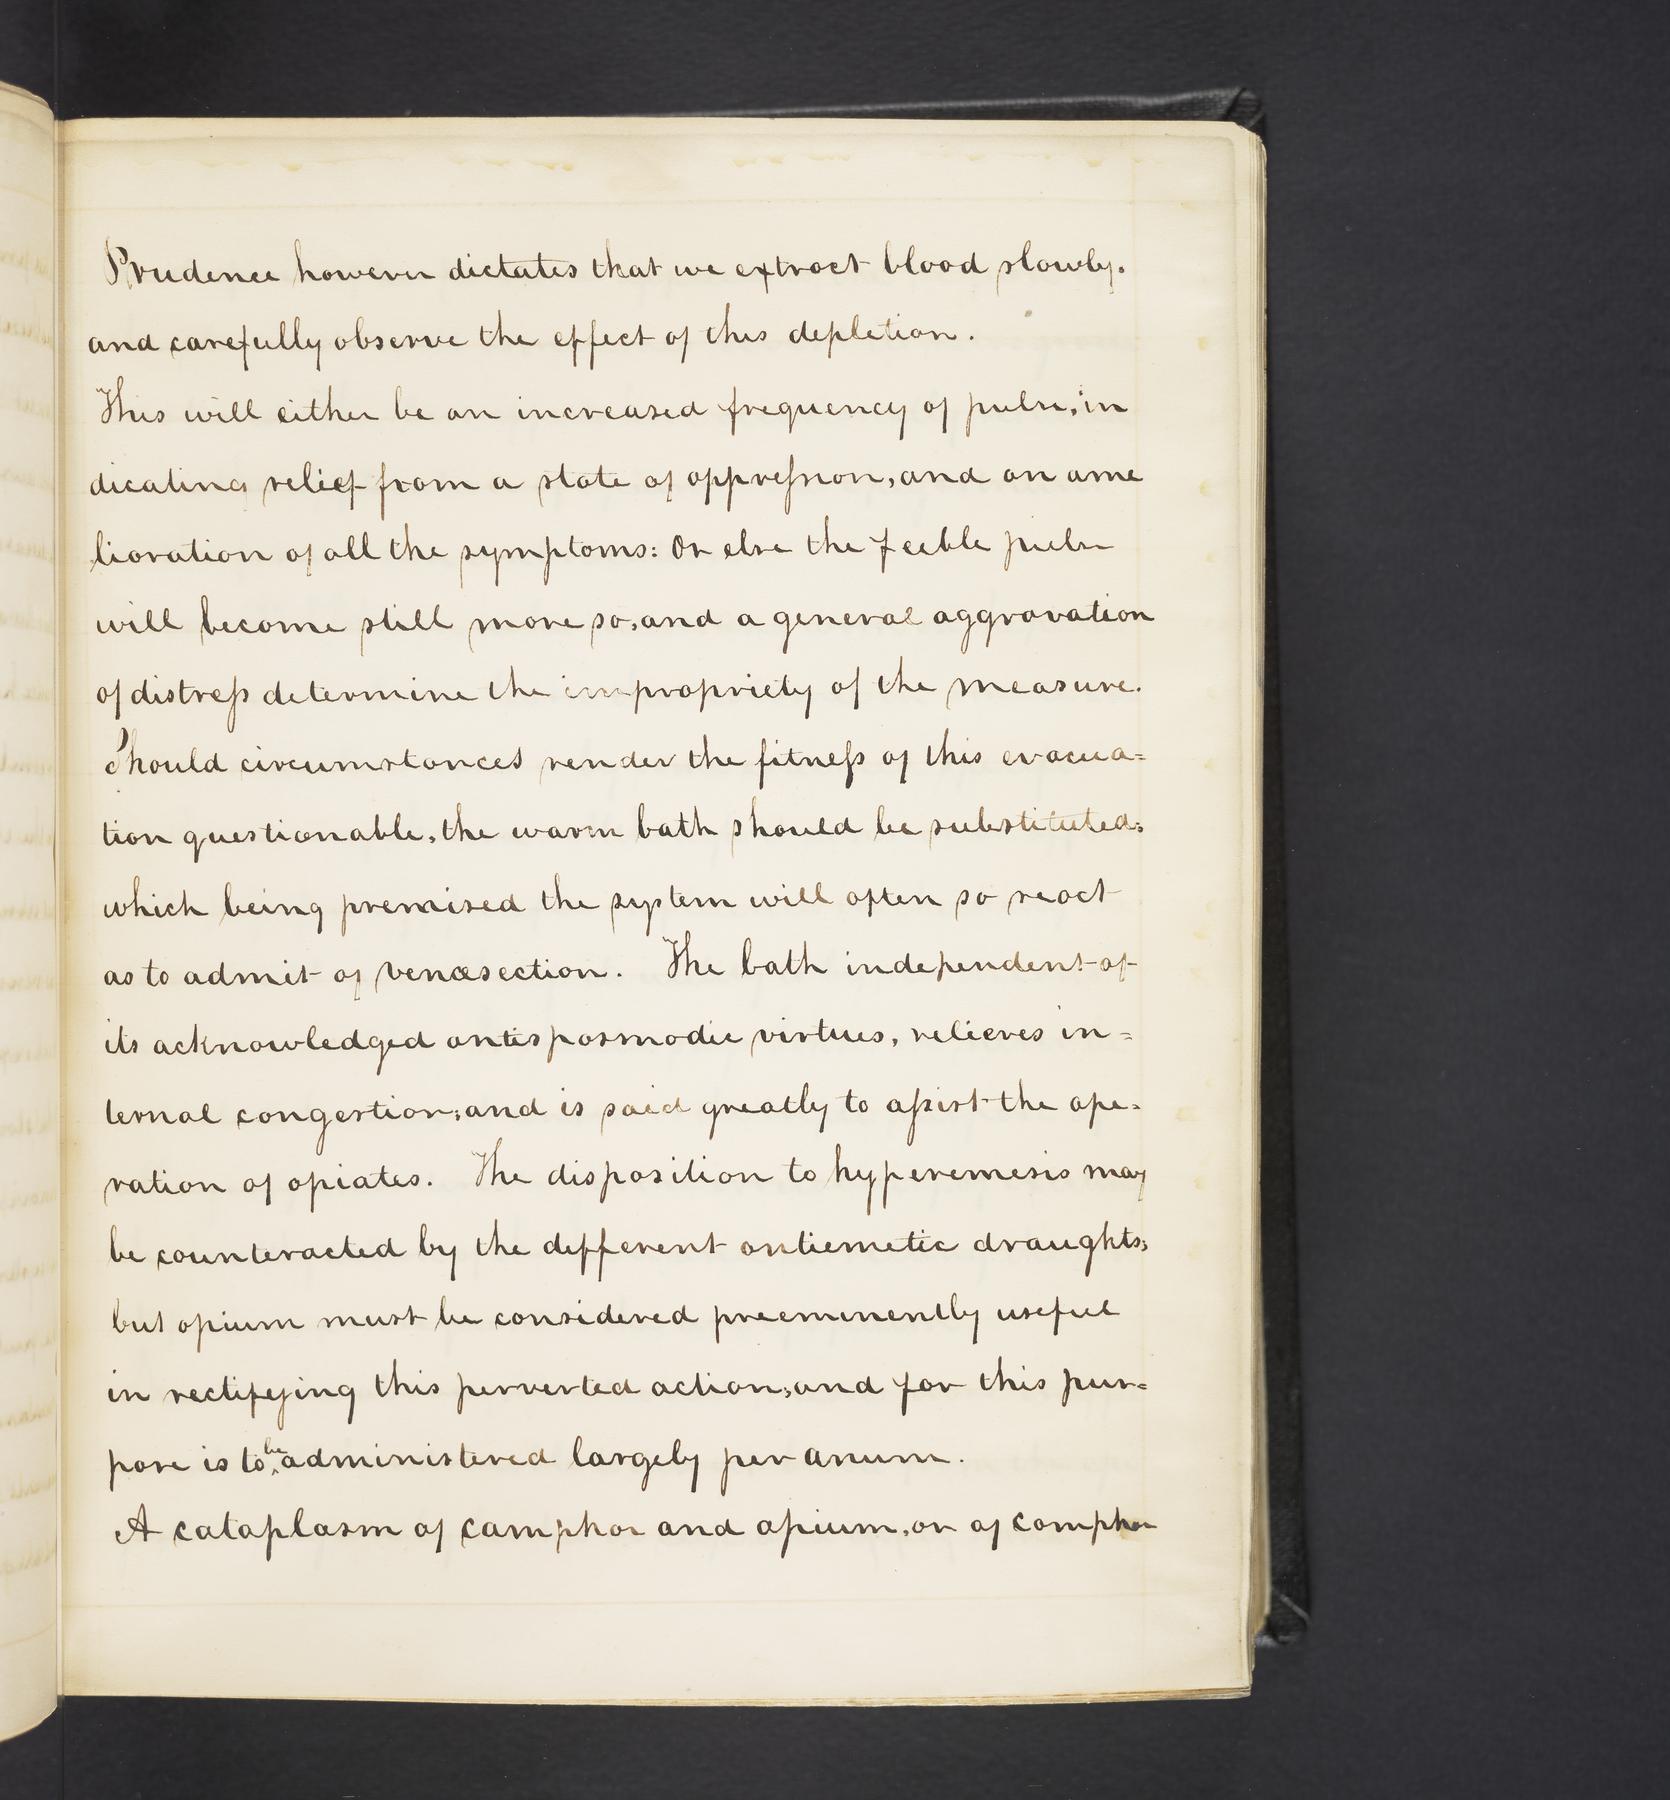 Prudence however dictates that we extract blood slowly.
and carefully observe the effect of this depletion.
This will either be an increased frequency of pulse, in
dicating relief from a state of oppreſsion, and an ame
lioration of all the symptoms: Or else the feeble pulse
will become still more so, and a general aggravation
of distreſs determine the impropriety of the measure.
Should circumstances render the fitneſs of this evacua=
tion questionable, the warm bath should be substituted;
which being premised the system will often so react
as to admit of venæsection. The bath independent of
its acknowledged antispasmodic virtues, relieves in=
ternal congestion; and is said greatly to aſsist the ope=
ration of opiates. The disposition to hyperemesis may
be counteracted by the different antiemetic draughts;
but opium must be considered preeminently useful
in rectifying this perverted action; and for this pur=
pose is to be administered largely per anum.
A cataplasm of camphor and opium, or of camphor